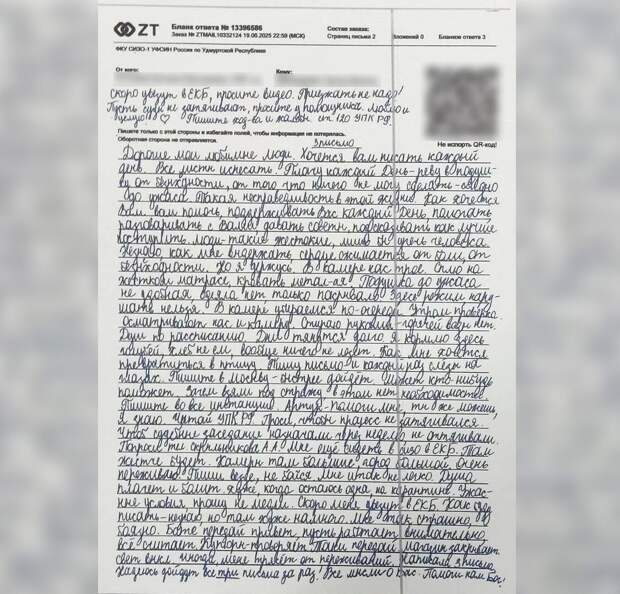 ZT
Бланк ответа № 13396586
Заказ № ZTMAIL10332124 19.06.2025 22:59 (МСК)
Состав заказа:
Страниц письма 2
Вложений 0
Бланков ответа 3
ФКУ СИЗО-1 УФСИН России по Удмуртской Республике
От кого:
Кому:
Скоро увезут в ЕКБ, просите видео. Приезжать не надо!
Пусть суды не затягивают, просите у помощника. Люблю и
целую ♡ Пишите ход-ва и жалобы ст 120 УПК РФ.
Пишите только с этой стороны и избегайте полей, чтобы информация не потерялась.
Оборотная сторона не отправляется.
Не испорть QR-код!
3 письмо
Дорогие мои любимые люди. Хочется вам писать каждый
день. Все листы исписать. Плачу каждый день-реву в подуш-
ку от безысходности, от того что ничего не могу сделать
до ужаса. Такая несправедливость в этой жизни. Как хочется
Вам вам помочь, поддерживать Вас каждый день, помогать
разговаривать с Вами давать советы, подсказывать как лучше
поступить. Люди-такие жестокие, лишь бы
как мне выдержать сердце сжимается от боли, от
безысходности. Но я держусь. В камере нас трое. Сплю на
жестком матрасе, кровать Подушка до ужаса
не удобная, одеяла нет только покрывало. Здесь режим нару-
шать нельзя. В камере убираемся по-очереди. Утром проверка
осматривают нас и камеру. Стираю руками-горячей воды нет.
Душ по расписанию. Дни тянутся долго я кормлю здесь
голубей, хлеб не ем, вообще ничего не лезет. Как мне хочется
превратиться в птицу. Пишу письмо и каждый раз слезы на
глазах. Пишите в Москву-быстрее дойдет. Может кто-нибудь
поможет. Зачем взяли под стражу в этом нет необходимости.
Пишите во все инстанции. Артур-помоги мне, ты же можешь,
Я знаю. Читай УПК РФ. Проси, чтобы процесс не затягивался.
Чтоб судебные заседания назначали через неделю не оттягивали.
Попроси ты А.А. Мне ещё в сизо в ЕКБ. Там
жестче будет. Камеры там большие, город большой. Очень
переживаю. Пиши везде, не бойся. Мне и так не легко. Душа
плачет и болит хуже, когда остаюсь одна, на карантине. Ужас-
ные условия прошу не медли. Скоро меня увезут в ЕКБ. Как
писать-не знаю, но там хуже намного. Мне так страшно,
боязно. Бате передай привет, пусть работает внимательно,
всё считает. проверяет. Тане передай магазин закрывает
свет выкл. иногда, меня трясёт от переживаний. Написала 3 письма.
Надеюсь дойдут все три письма за раз! Все мысли о Вас. Помоги нам Бог!